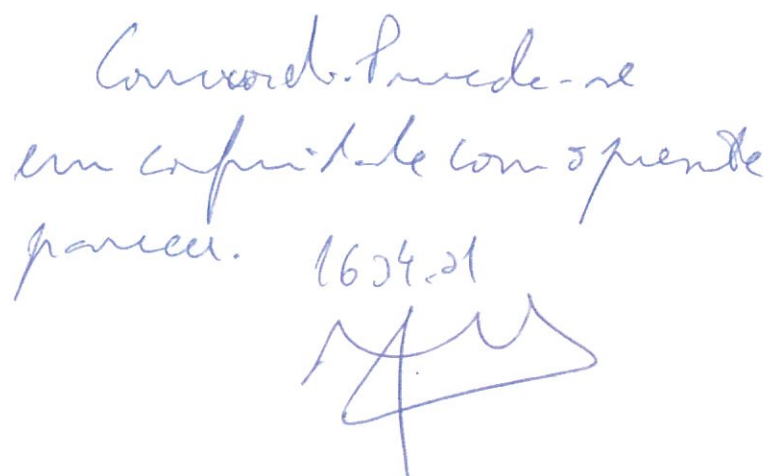 Concordo. Proceda-se
em conformidade com o presente
parecer. 16.04.21